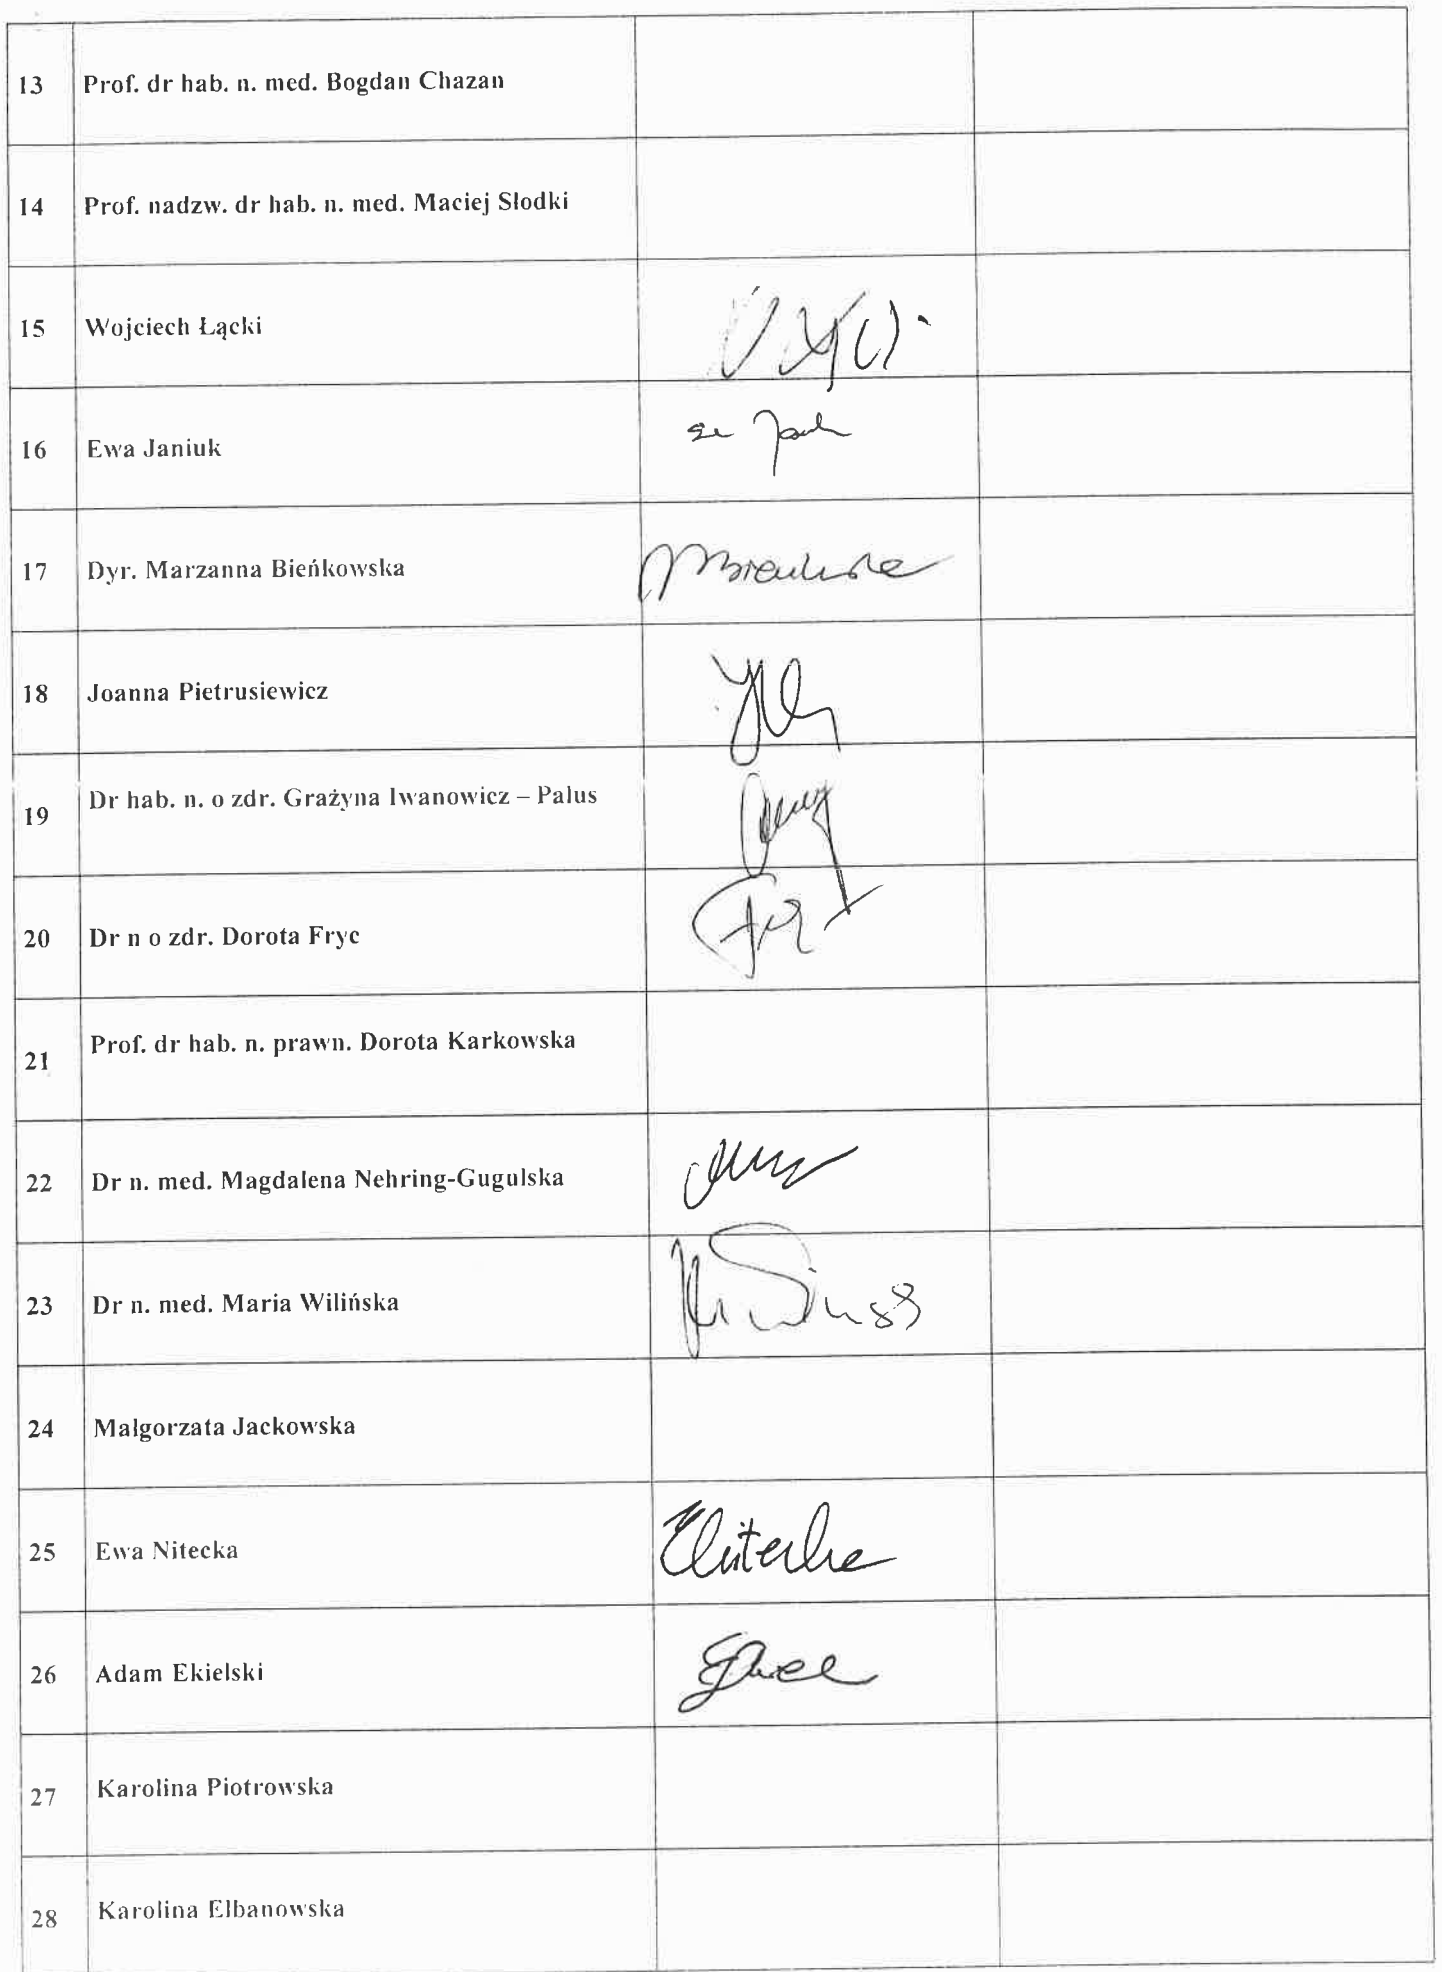 13 Prof. dr hab. n. med. Bogdan Chazan
14 Prof. nadzw. dr hab. n. med. Maciej Słodki
15 Wojciech Łącki
16 Ewa Janiuk
17 Dyr. Marzanna Bieńkowska
18 Joanna Pietrusiewicz
19 Dr hab. n. o zdr. Grażyna Iwanowicz – Palus
20 Dr n o zdr. Dorota Fryc
21 Prof. dr hab. n. prawn. Dorota Karkowska
22 Dr n. med. Magdalena Nehring-Gugulska
23 Dr n. med. Maria Wilińska
24 Małgorzata Jackowska
25 Ewa Nitecka
26 Adam Ekielski
27 Karolina Piotrowska
28 Karolina Elbanowska